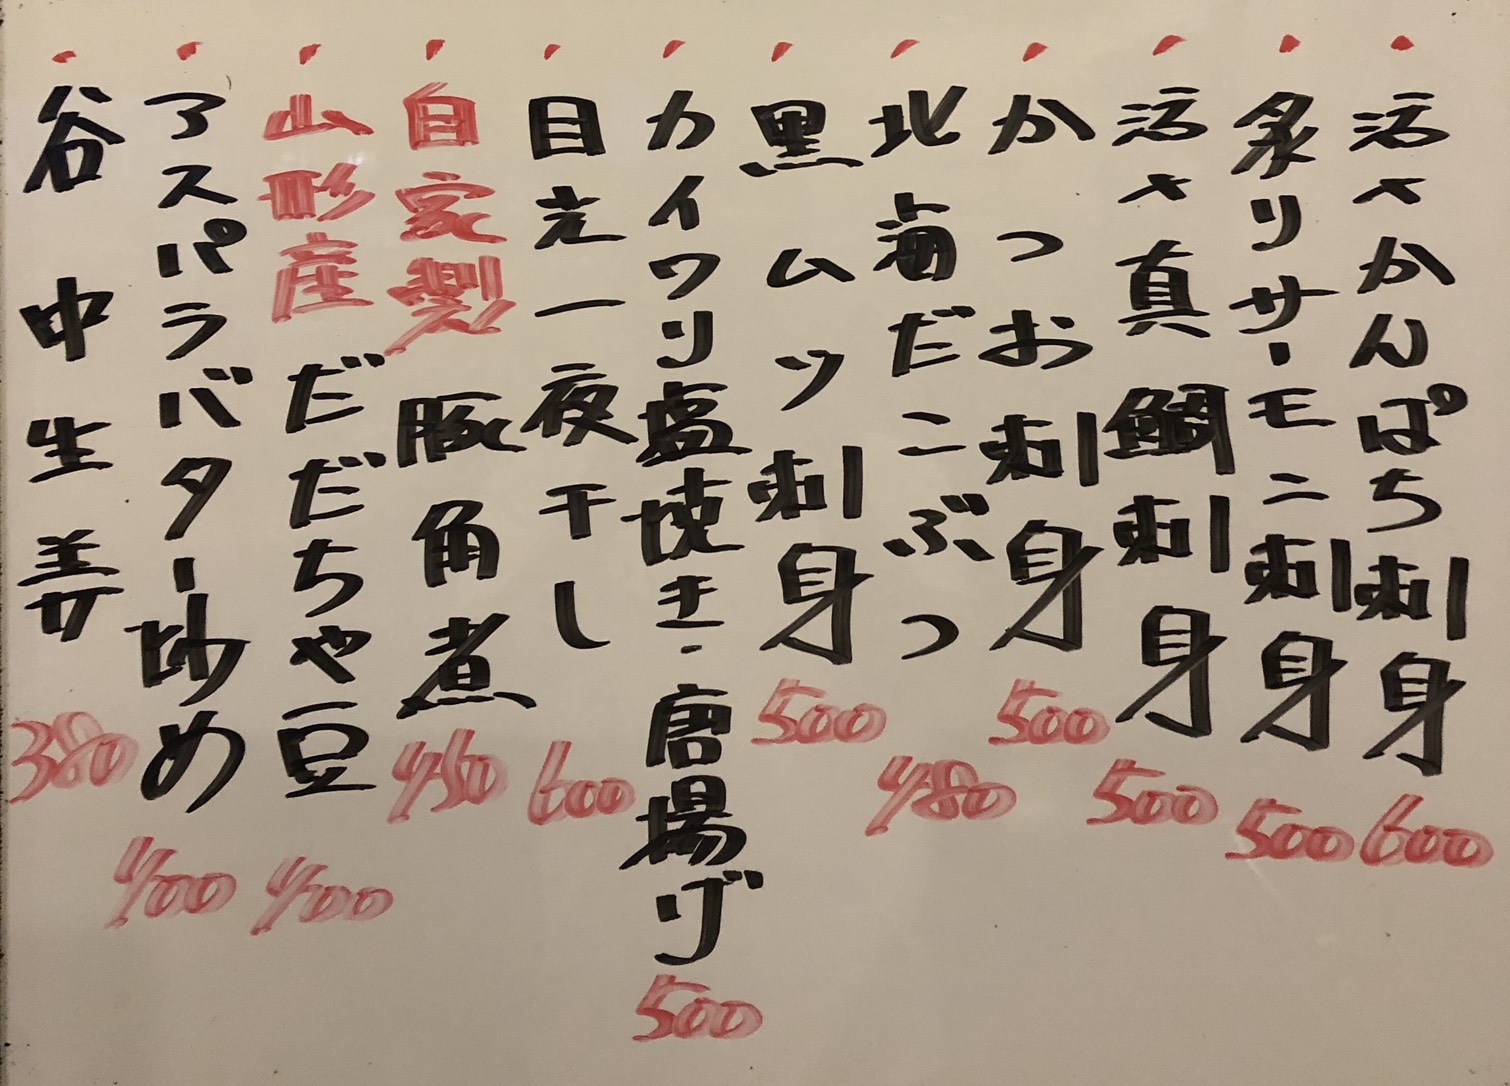 活〆かんぱち刺身 600
炙りサーモン刺身 500
活〆真鯛刺身 500
かつお刺身 500
北海だこぶつ 480
黒ムツ刺身 500
カイワリ塩焼き・唐揚げ 500
目光一夜干し 600
自家製 豚角煮 450
山形産 だだちゃ豆 400
アスパラバター炒め 400
谷中生姜 380